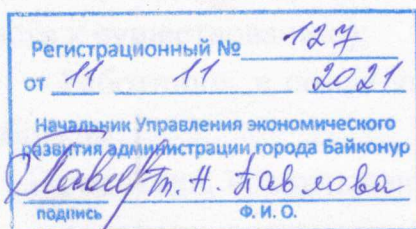 Регистрационный № 127
от 11 11 2021
Начальник Управления экономического
развития администрации города Байконур
Т. Н. Павлова
подпись Ф. И. О.